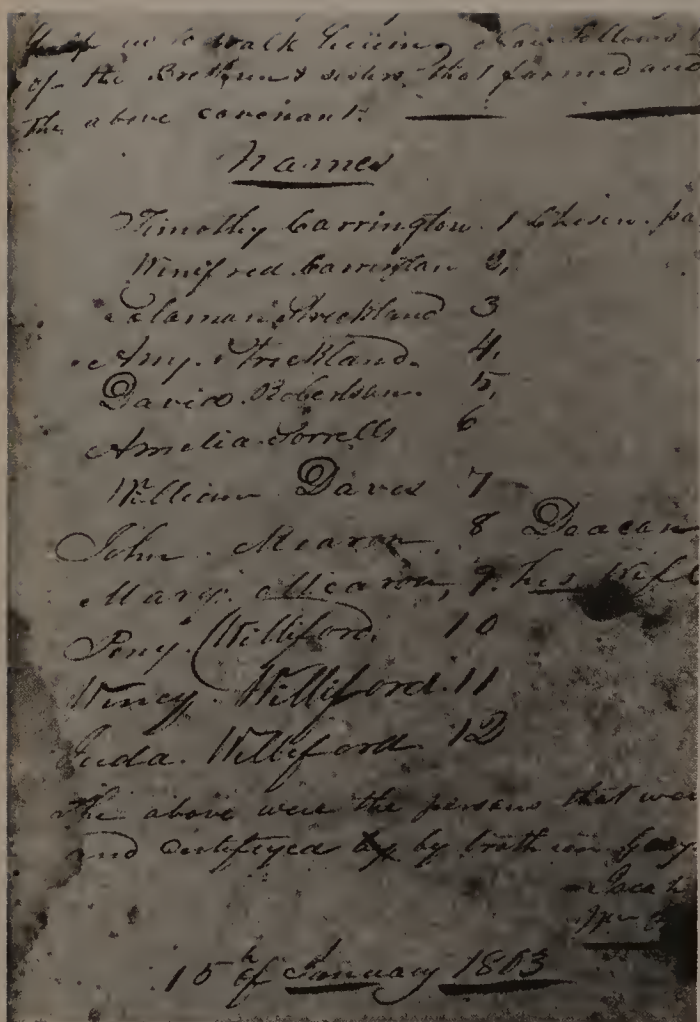 us to walk herein, Now follows
of the Brethren & sisters that formed and
the above covenant.
Names
Timothy Carrington. 1 Chosen. pa
Winifred Carrington 2,
Salamon Strickland 3
Amy. Strickland. 4,
David. Robertson. 5,
Amelia Sorrells 6
William Daves 7
John. Mearon, 8 Deacon
Mary. Mearon, 9. his Wife
Peny. Williford. 10
Winey. Williford. 11
Juda. Williford. 12
The above were the persons that wer
and certifyed by brethren
Jacob
15th of January 1803